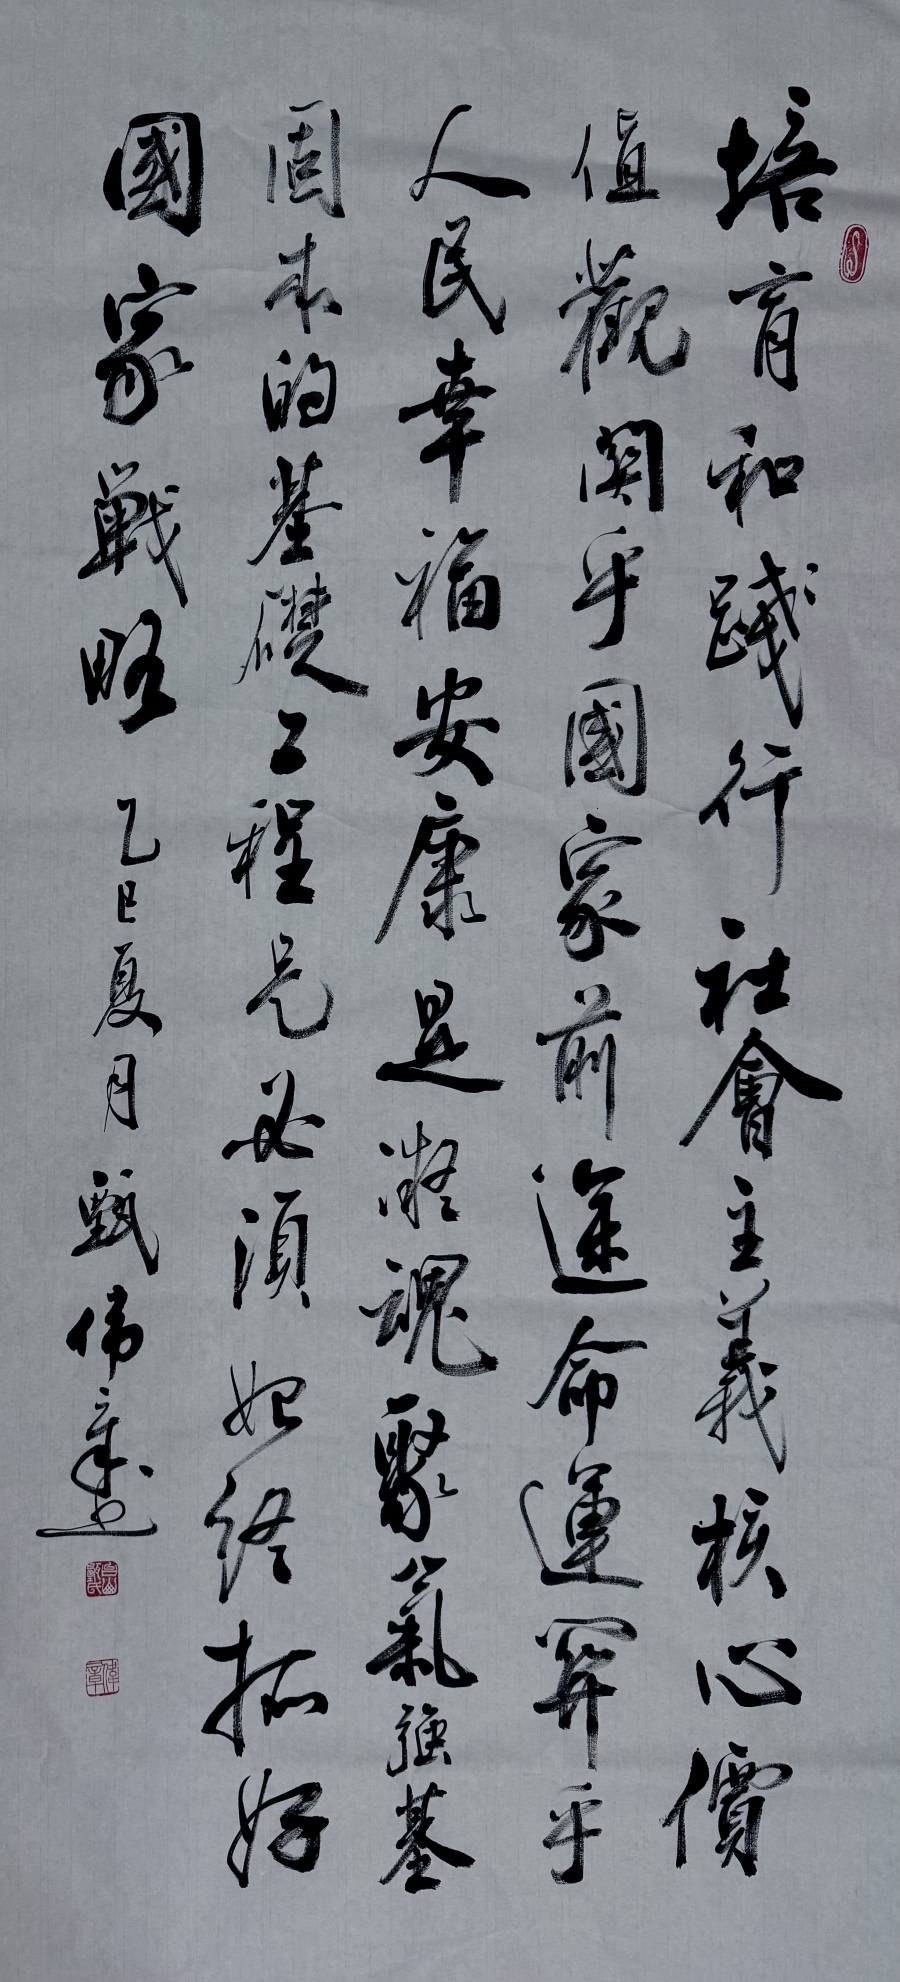 培育和踐行社會主義核心價
值觀關乎國家前途命運關乎
人民幸福安康是凝魂聚氣強基
固本的基礎工程是必須始終抓好
國家戰略
乙巳夏月 甄偉章